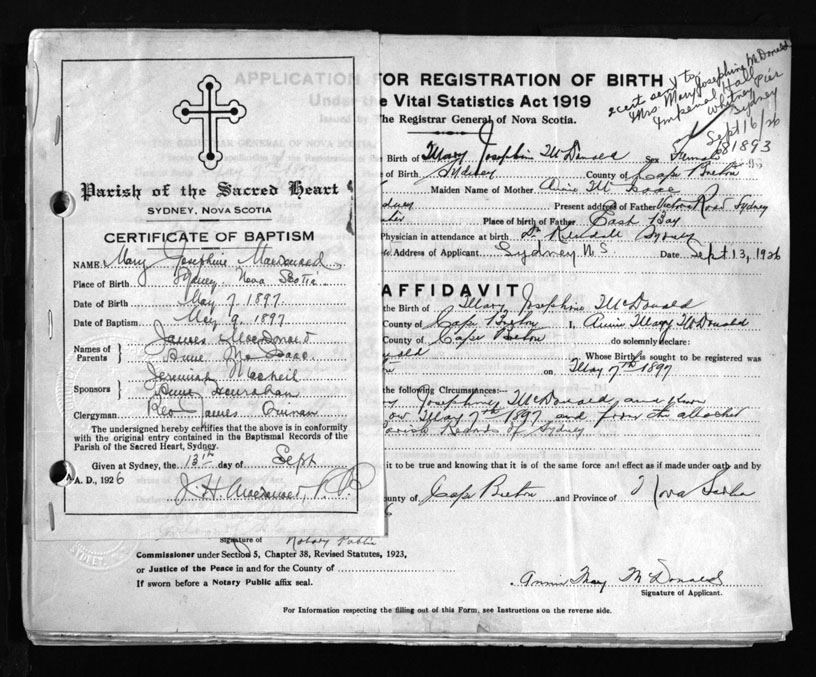 Parish of the Sacred Heart
SYDNEY, NOVA SCOTIA
CERTIFICATE OF BAPTISM
NAME Mary Josephine Macdonald
Place of Birth Sydney, Nova Scotia
Date of Birth May 7 1897
Date of Baptism May 9. 1897
Names of Parents } James MacDonald
Anne Mc Isaac
Sponsors } Jeremiah MacNeil
Anne
Clergyman Rev James
The undersigned hereby certifies that the above is in conformity
with the original entry contained in the Baptismal Records of the
Parish of the Sacred Heart, Sydney.
Given at Sydney, the 13th day of Sept
A. D., 1926
J. H. Macdonald, P. P.
APPLICATION FOR REGISTRATION OF BIRTH
Under the Vital Statistics Act 1919
The Registrar General of Nova Scotia.
cert sent to
Mrs Mary Josephine McDonald
Imperial Hall
Whitney Pier
Sydney
Sept 16/26
681893
Birth of Mary Josephine McDonald Sex Female
of Birth Sydney County of Cape Breton
Maiden Name of Mother Annie McIsaac
Present address of Father Victoria Road Sydney
Place of birth of Father East Bay
Physician in attendance at birth Dr. Kendall Sydney
Address of Applicant Sydney N.S. Date Sept. 13, 1926
AFFIDAVIT
the Birth of Mary Josephine McDonald
County of Cape Breton I, Annie Mary McDonald
County of Cape Breton do solemnly declare:
Whose Birth is sought to be registered was
on May 7th 1897
the following Circumstances:
Josephine McDonald and
May 7th 1897 and from the attached
Parish Records of Sydney
it to be true and knowing that it is of the same force and effect as if made under oath and by
County of Cape Breton and Province of Nova Scotia
Signature of Notary Public
Commissioner under Section 5, Chapter 38, Revised Statutes, 1923,
or Justice of the Peace in and for the County of
If sworn before a Notary Public affix seal.
Annie Mary McDonald
Signature of Applicant.
For Information respecting the filling out of this Form, see Instructions on the reverse side.